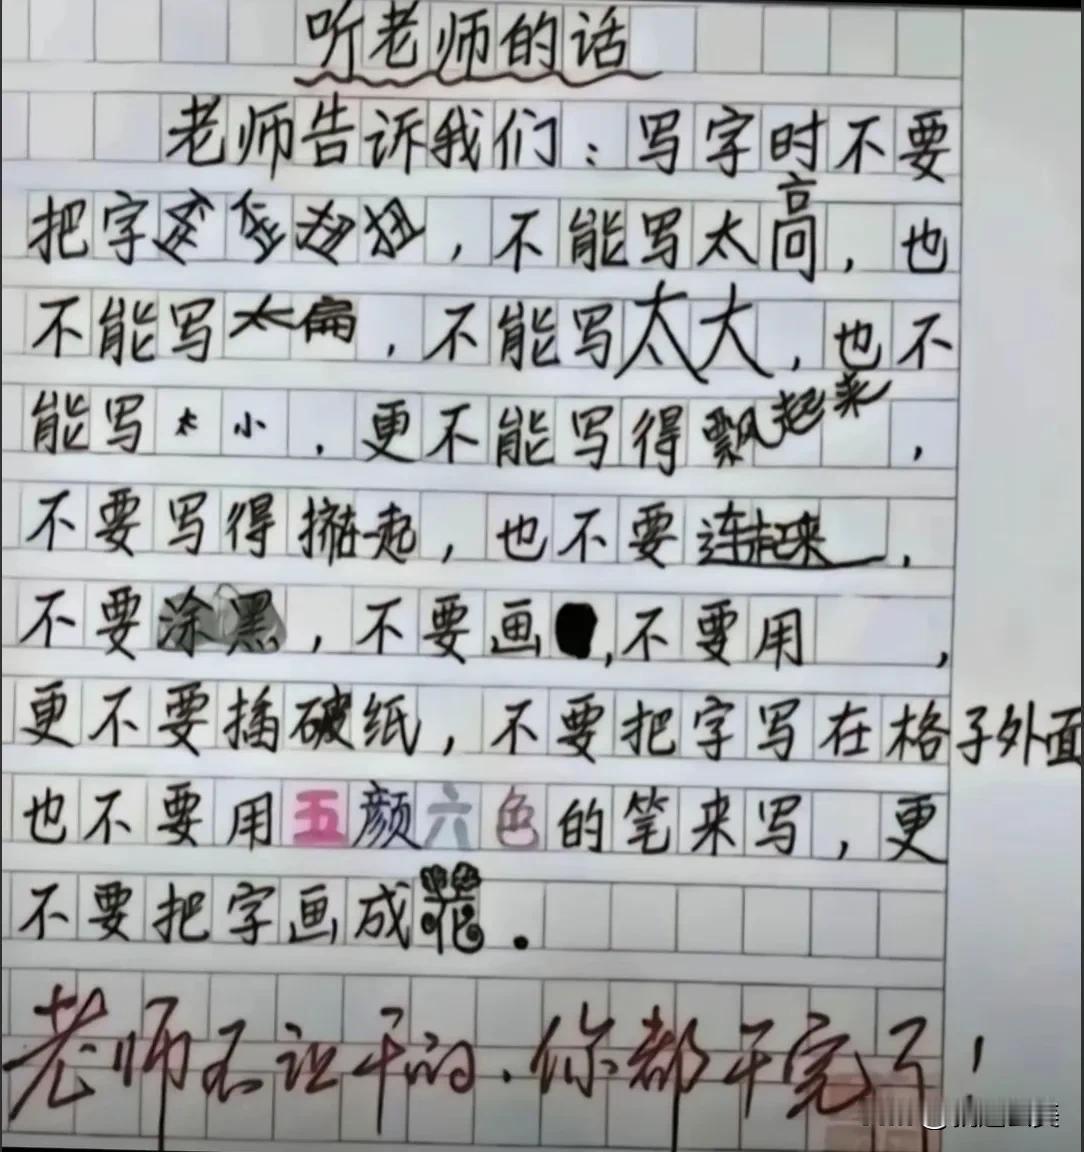 听老师的话
老师告诉我们：写字时不要
把字歪歪扭扭，不能写太高，也
不能写太扁，不能写太大，也不
能写太小，更不能写得飘起来，
不要写得挤一起，也不要连起来，
不要涂黑，不要画，不要用　　，
更不要插破纸，不要把字写在格子外面
也不要用五颜六色的笔来写，更
不要把字画成花。
老师不让干的，你都干完了！